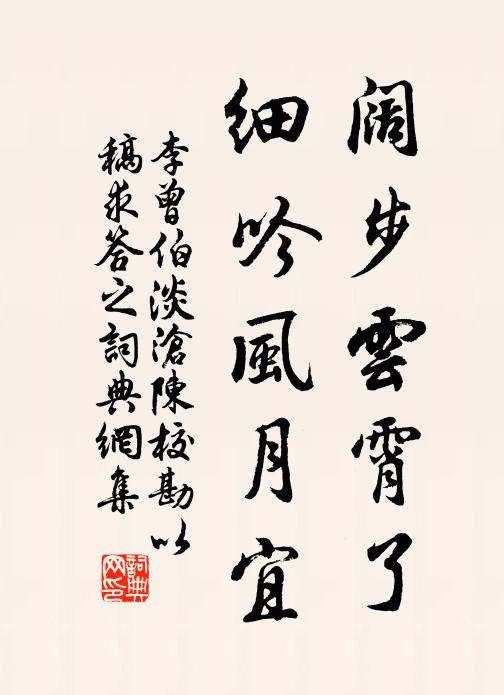 阔步雲霄了
细吟風月宜
李曾伯淡滄陳校勘以
稿求答之詞典網集
詞典
网印